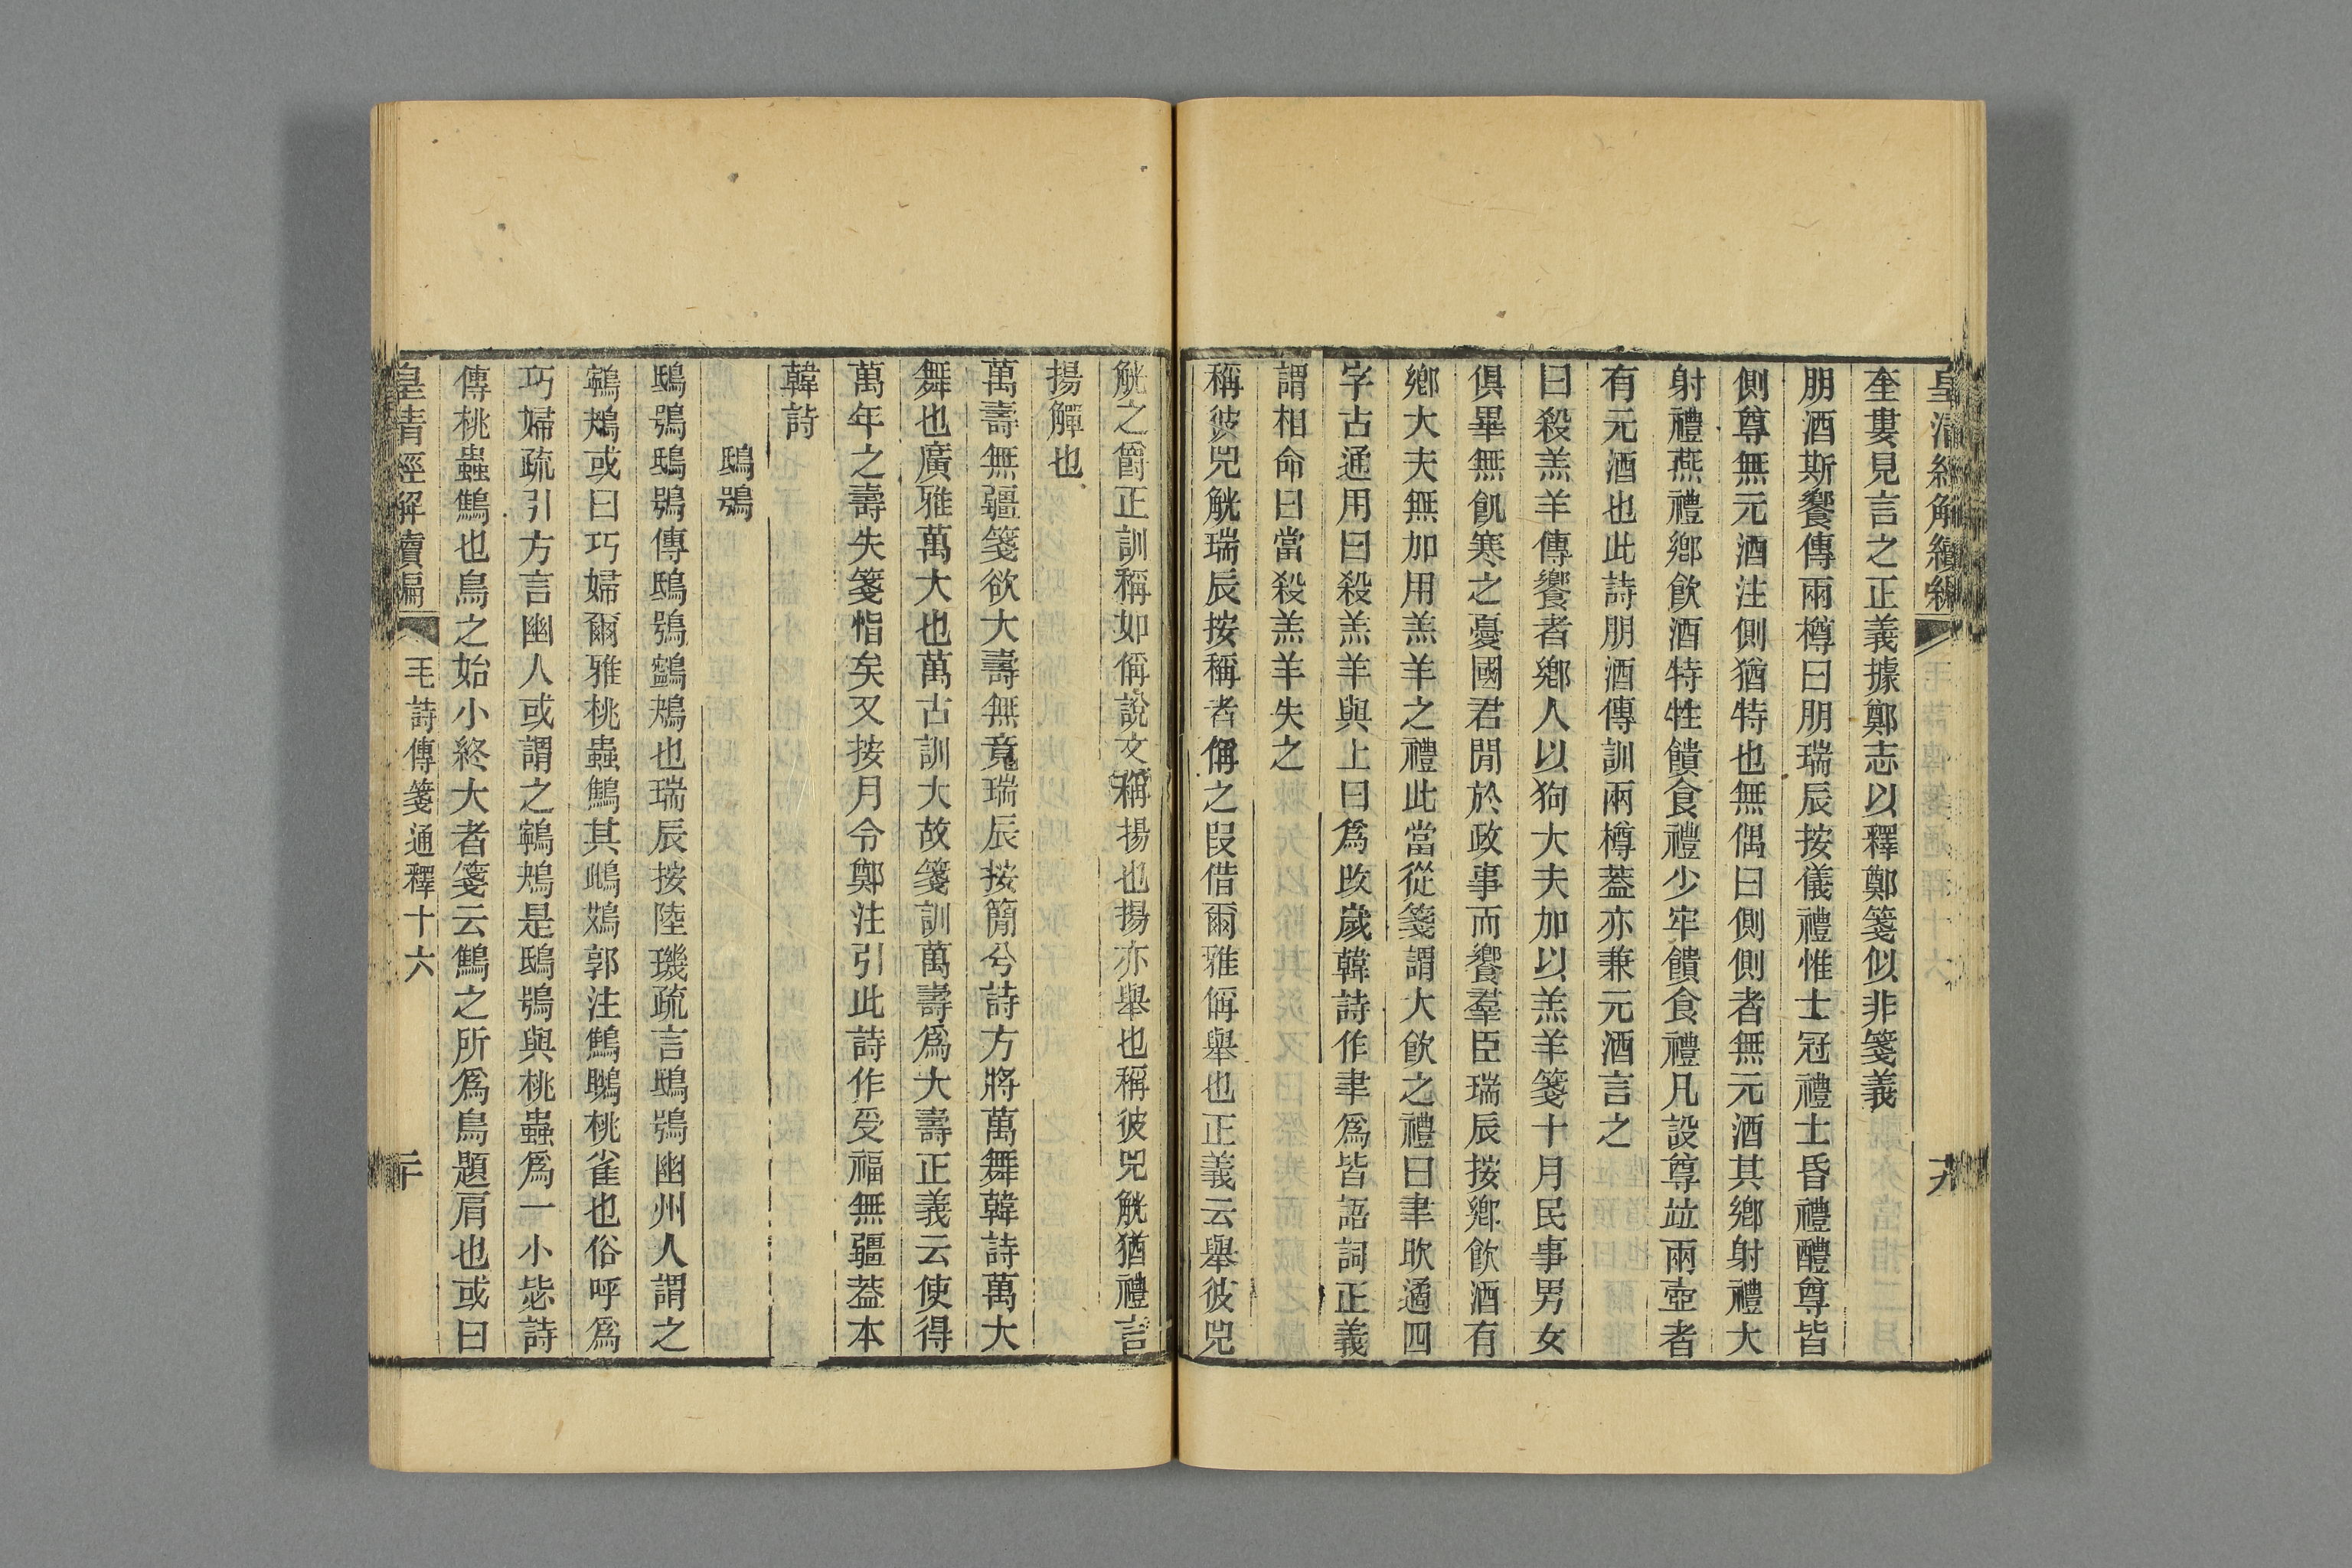 皇清經解續編
十九
奎婁見言之正義據鄭志以釋鄭箋似非箋義
朋酒斯饗傳兩樽曰朋瑞辰按儀禮惟士冠禮士昏禮醴尊皆
側尊無元酒注側猶特也無偶曰側側者無元酒其鄉射禮大
射禮燕禮鄉飲酒特牲饋食禮少牢饋食禮凡設尊竝兩壺者
有元酒也此詩朋酒傳訓兩樽葢亦兼元酒言之
曰殺羔羊傳饗者鄉人以狗大夫加以羔羊箋十月民事男女
俱畢無飢寒之憂國君閒於政事而饗羣臣瑞辰按鄉飲酒有
鄉大夫無加用羔羊之禮此當從箋謂大飲之禮曰聿昳遹四
字古通用曰殺羔羊與上曰爲改歲韓詩作聿爲皆語詞正義
謂相命曰當殺羔羊失之
稱彼兕觥瑞辰按稱者偁之叚借爾雅偁舉也正義云舉彼兕
觥之爵正訓稱如偁說文稱揚也揚亦舉也稱彼兕觥猶禮言
揚觶也
萬壽無疆箋欲大壽無竟瑞辰按簡兮詩方將萬舞韓詩萬大
舞也廣雅萬大也萬古訓大故箋訓萬壽爲大壽正義云使得
萬年之壽失箋恉矣又按月令鄭注引此詩作受福無疆葢本
韓詩
鴟鴞
鴟鴞鴟鴞傳鴟鴞鸋鴂也瑞辰按陸璣疏言鴟鴞幽州人謂之
鸋鴂或曰巧婦爾雅桃蟲鷦其雌鴱郭注鷦䳟桃雀也俗呼爲
巧婦疏引方言幽人或謂之鸋鴂是鴟鴞與桃蟲爲一小毖詩
傳桃蟲鷦也鳥之始小終大者箋云鷦之所爲鳥題肩也或曰
皇清經解續編
毛詩傳箋通釋十六
二十